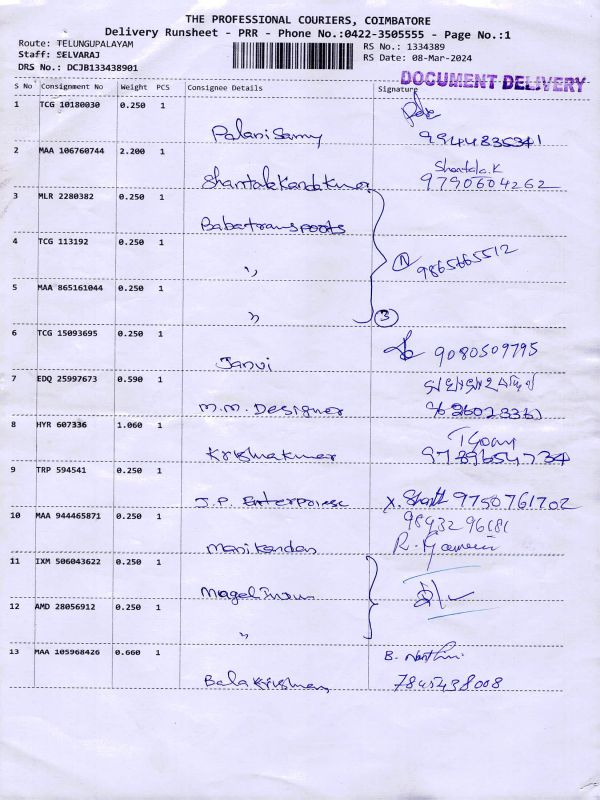 THE PROFESSIONAL COURIERS, COIMBATORE
Delivery Runsheet - PRR - Phone No.:0422-3505555 - Page No.:1
Route: TELUNGUPALAYAM
RS No.: 1334389
Staff: SELVARAJ
RS Date: 08-Mar-2024
DRS No.: DCJB133438901
DOCUMENT DELIVERY
S No Consignment No Weight PCS Consignee Details Signature
1 TCG 10180030 0.250 1
Palanisamy 9944835341
2 MAA 106760744 2.200 1 Shantala.K
Shantala Kandakumar 9790604262
3 MLR 2280382 0.250 1
Babatransports
4 TCG 113192 0.250 1
" 9865665512
5 MAA 865161044 0.250 1
" 3
6 TCG 15093695 0.250 1
Janvi 9080509795
7 EDQ 25997673 0.590 1
M.M. Designer
8 HYR 607336 1.060 1
Krishnakumar 9789654734
9 TRP 594541 0.250 1
J.P. Enterpriese X. Shanth 9750761702
10 MAA 944465871 0.250 1 9843296181
Manikandan
11 IXM 506043622 0.250 1
12 AMD 28056912 0.250 1
"
13 MAA 105968426 0.660 1 B. Nanthini
Balakrishnan 7845438008